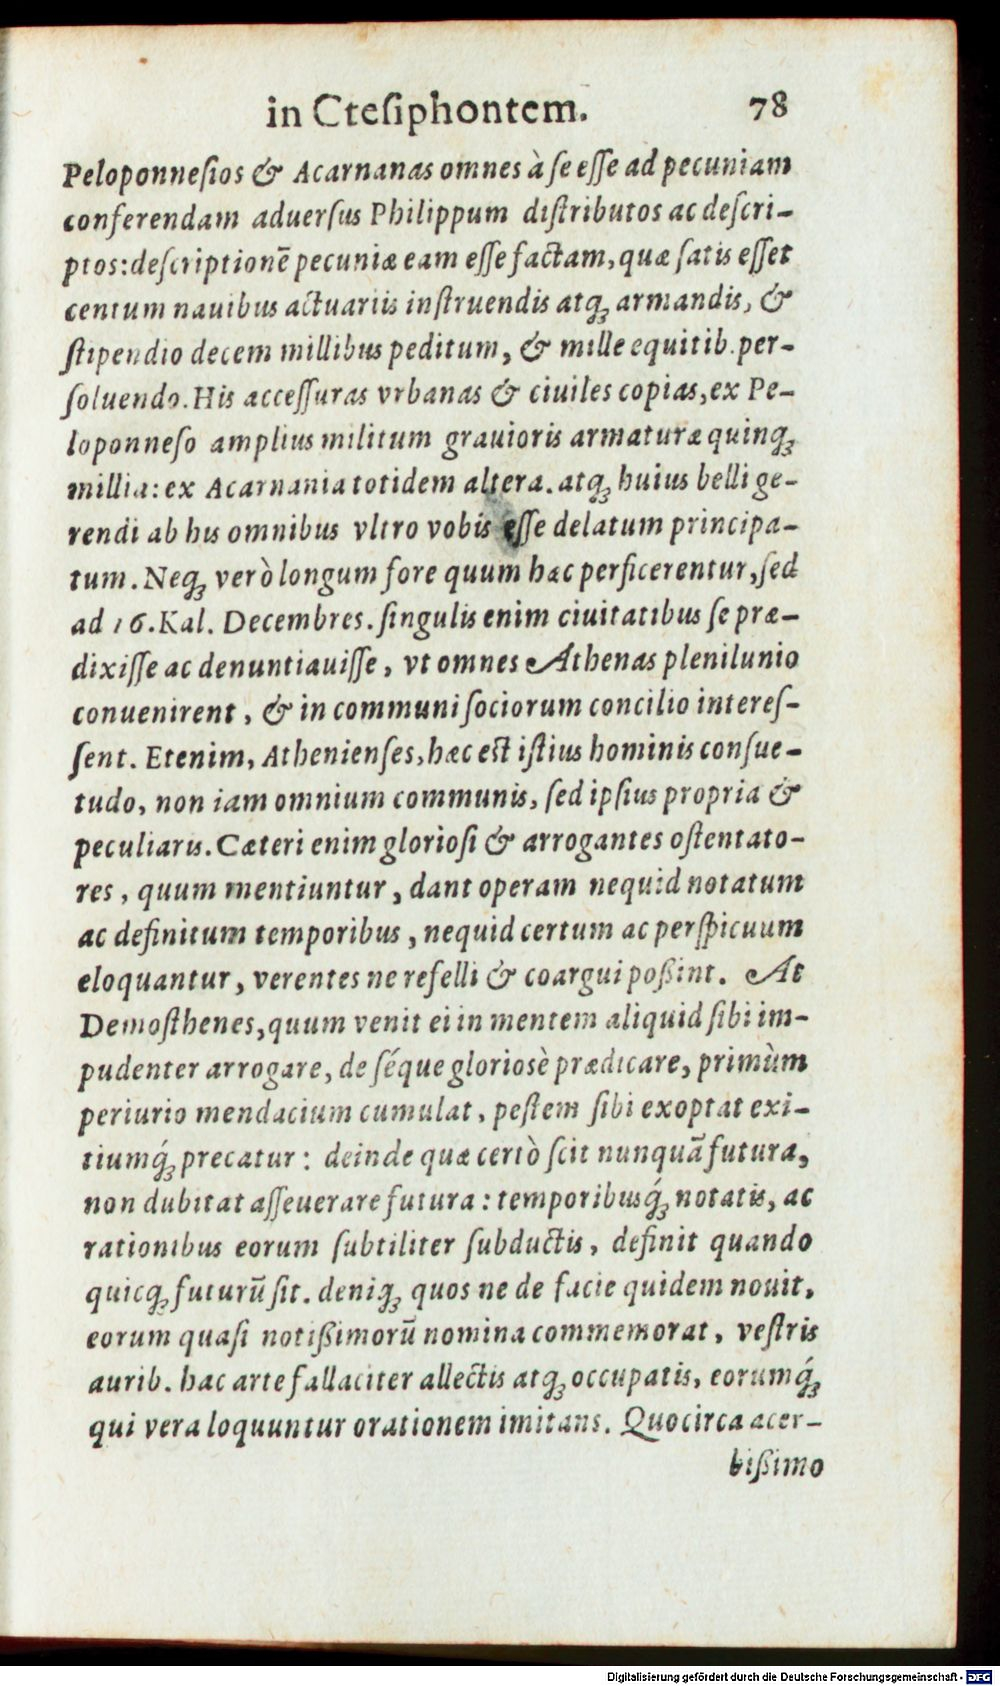 in Cteſiphontem. 78
Peloponneſios & Acarnanas omnes à ſe eſſe ad pecuniam
conferendam aduerſus Philippum diſtributos ac deſcri-
ptos: deſcriptionē pecuniæ eam eſſe factam, quæ ſatis eſſet
centum nauibus actuariis inſtruendis atq; armandis, &
ſtipendio decem millibus peditum, & mille equitib. per-
ſoluendo. His acceſſuras vrbanas & ciuiles copias, ex Pe-
loponneſo amplius militum grauioris armaturæ quinq;
millia: ex Acarnania totidem altera. atq; huius belli ge-
rendi ab his omnibus vltro vobis eſſe delatum principa-
tum. Neq; verò longum fore quum hæc perficerentur, ſed
ad 16. Kal. Decembres. ſingulis enim ciuitatibus ſe præ-
dixiſſe ac denuntiauiſſe, vt omnes Athenas plenilunio
conuenirent, & in communi ſociorum concilio intereſ-
ſent. Etenim, Athenienſes, hæc eſt iſtius hominis conſue-
tudo, non iam omnium communis, ſed ipſius propria &
peculiaris. Cæteri enim glorioſi & arrogantes oſtentato-
res, quum mentiuntur, dant operam nequid notatum
ac definitum temporibus, nequid certum ac perſpicuum
eloquantur, verentes ne refelli & coargui poßint. At
Demoſthenes, quum venit ei in mentem aliquid ſibi im-
pudenter arrogare, de ſéque glorioſè prædicare, primùm
periurio mendacium cumulat, peſtem ſibi exoptat exi-
tiumq́; precatur: deinde quæ certò ſcit nunquã futura,
non dubitat aſſeuerare futura: temporibusq́; notatis, ac
rationibus eorum ſubtiliter ſubductis, definit quando
quicq; futurū ſit. deniq; quos ne de facie quidem nouit,
eorum quaſi notißimorū nomina commemorat, veſtris
aurib. hac arte fallaciter allectis atq; occupatis, eorumq́;
qui vera loquuntur orationem imitans. Quocirca acer-
bißimo
Digitalisierung gefördert durch die Deutsche Forschungsgemeinschaft - DFG